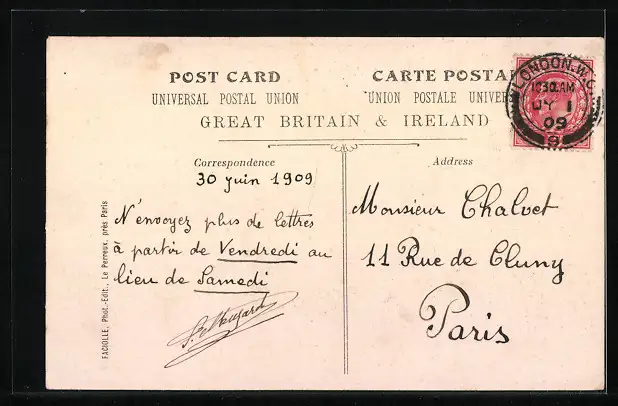 POST CARD CARTE POSTA
UNIVERSAL POSTAL UNION UNION POSTALE UNIVER
GREAT BRITAIN & IRELAND
LONDON.W.C.
10.30AM
JY 1
09
9
Correspondence
30 juin 1909
N'envoyez plus de lettres
à partir de Vendredi au
lieu de Samedi
Address
Monsieur Chalvet
11 Rue de Cluny
Paris
FACIOLLE, Phot.-Edit., Le Perreux, près Paris